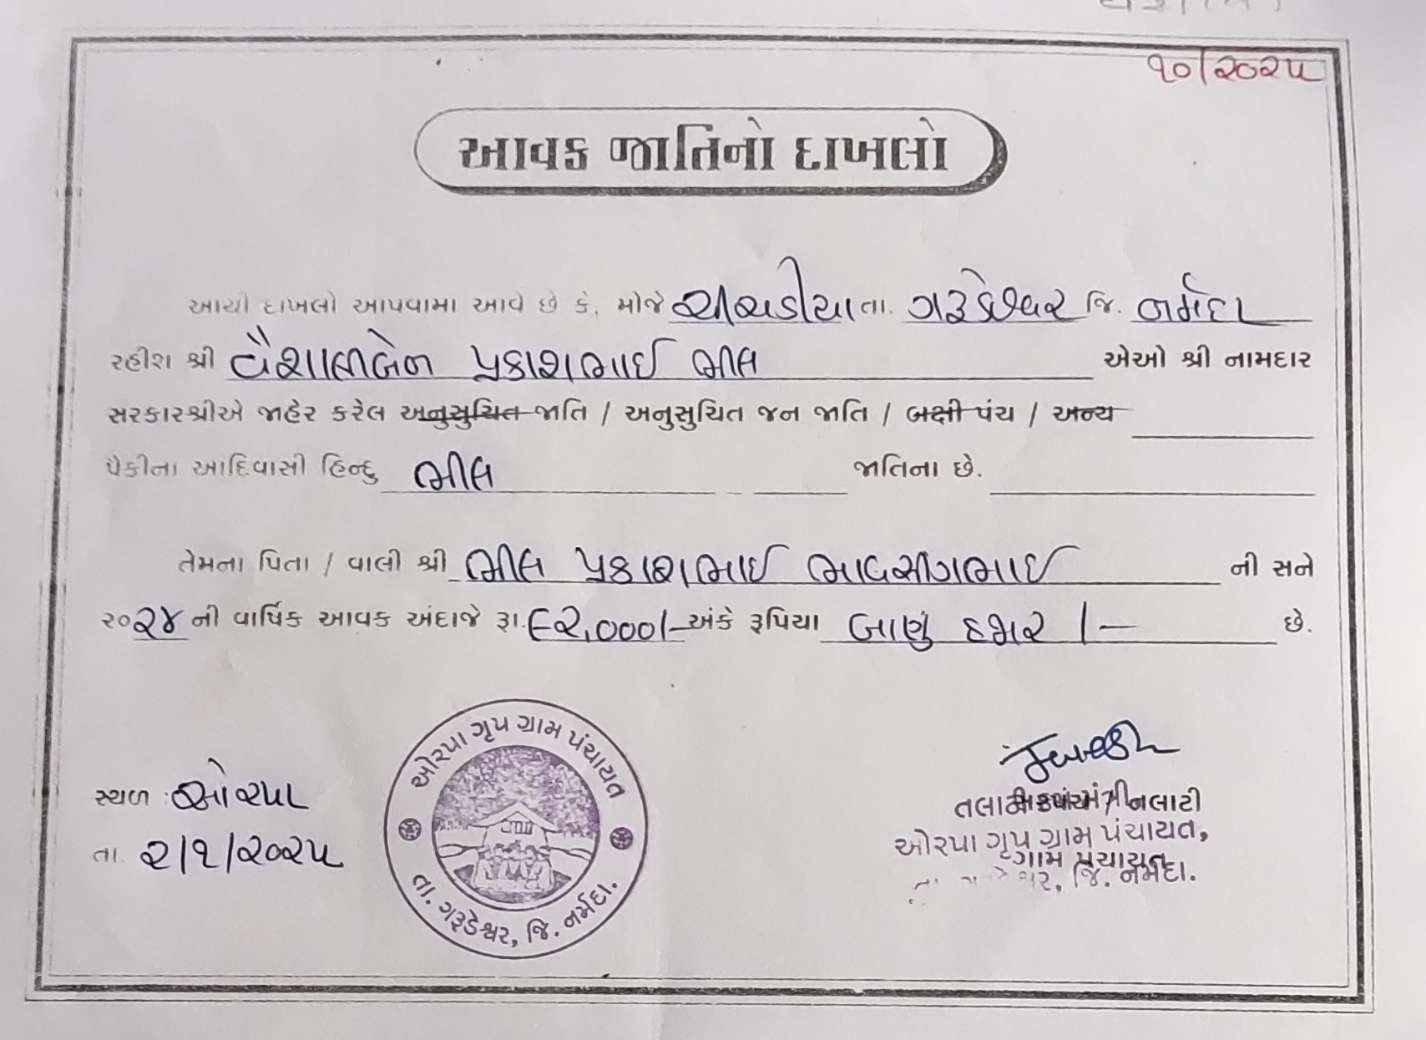 ૧૦/૨૦૨૫
આવક જાતિનો દાખલો
આથી દાખલો આપવામા આવે છે કે, મોજે તા. ગરૂડેશ્વર જિ. નર્મદા
રહીશ શ્રી વૈશાલીબેન પ્રકાશભાઈ ભીલ એઓ શ્રી નામદાર
સરકારશ્રીએ જાહેર કરેલ અનુસુચિત જાતિ / અનુસુચિત જન જાતિ / બક્ષી પંચ / અન્ય
પૈકીના આદિવાસી હિન્દુ ભીલ જાતિના છે.
તેમના પિતા / વાલી શ્રી ભીલ પ્રકાશભાઈ ભાવસીંગભાઈ ની સને
૨૦૨૪ ની વાર્ષિક આવક અંદાજે રૂા. ૯૨,૦૦૦/- અંકે રૂપિયા બાણું હજાર /- છે.
ઓરપા ગૃપ ગ્રામ પંચાયત
તા. ગરૂડેશ્વર, જિ. નર્મદા.
સ્થળ : ઓરપા
તા. ૨/૧/૨૦૨૫
તલાટી
ઓરપા ગૃપ ગ્રામ પંચાયત,
ગામ પંચાયત
જિ. નર્મદા.